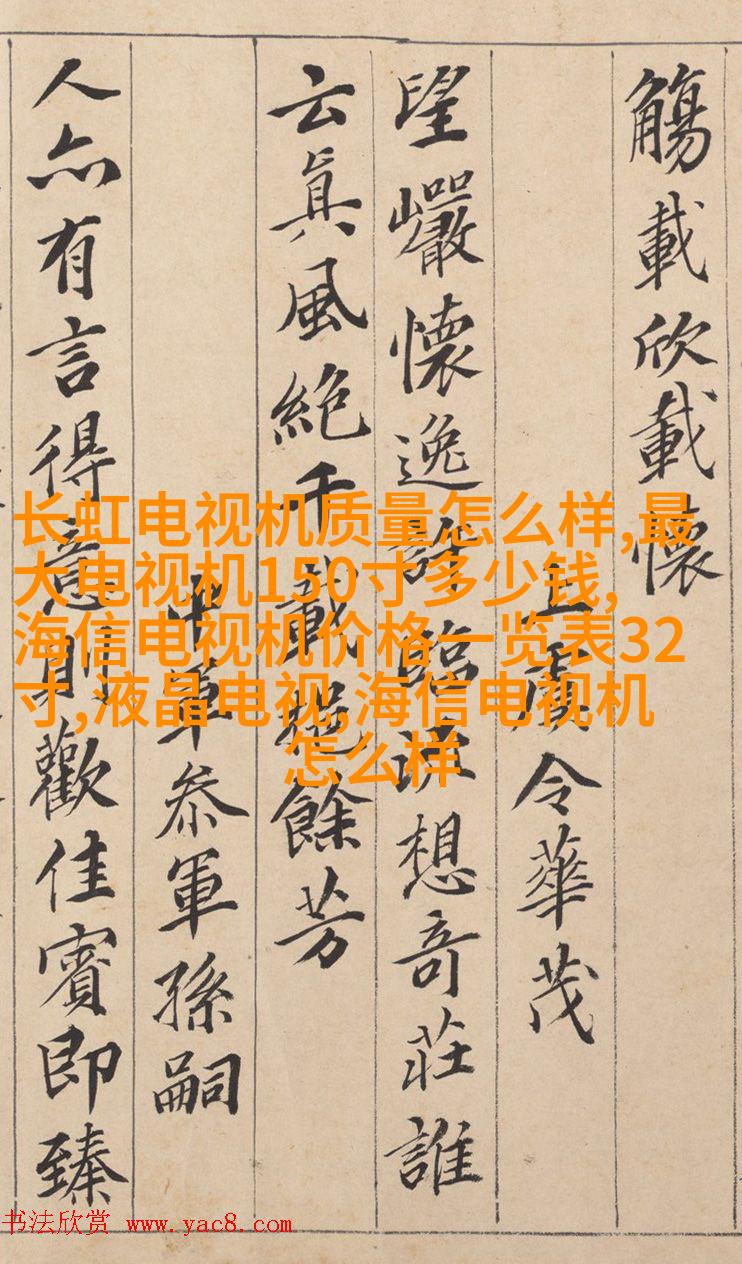 觴載欣載懷
上虞令華茂
望巖懷逸許臨流想奇莊誰
云眞風絕千載挹餘芳
中軍叅軍孫嗣
人亦有言得意則歡佳賓即臻
长虹电视机质量怎么样,最
大电视机150寸多少钱,
海信电视机价格一览表32
寸,液晶电视,海信电视机
怎么样
书法欣赏 www.yac8.com